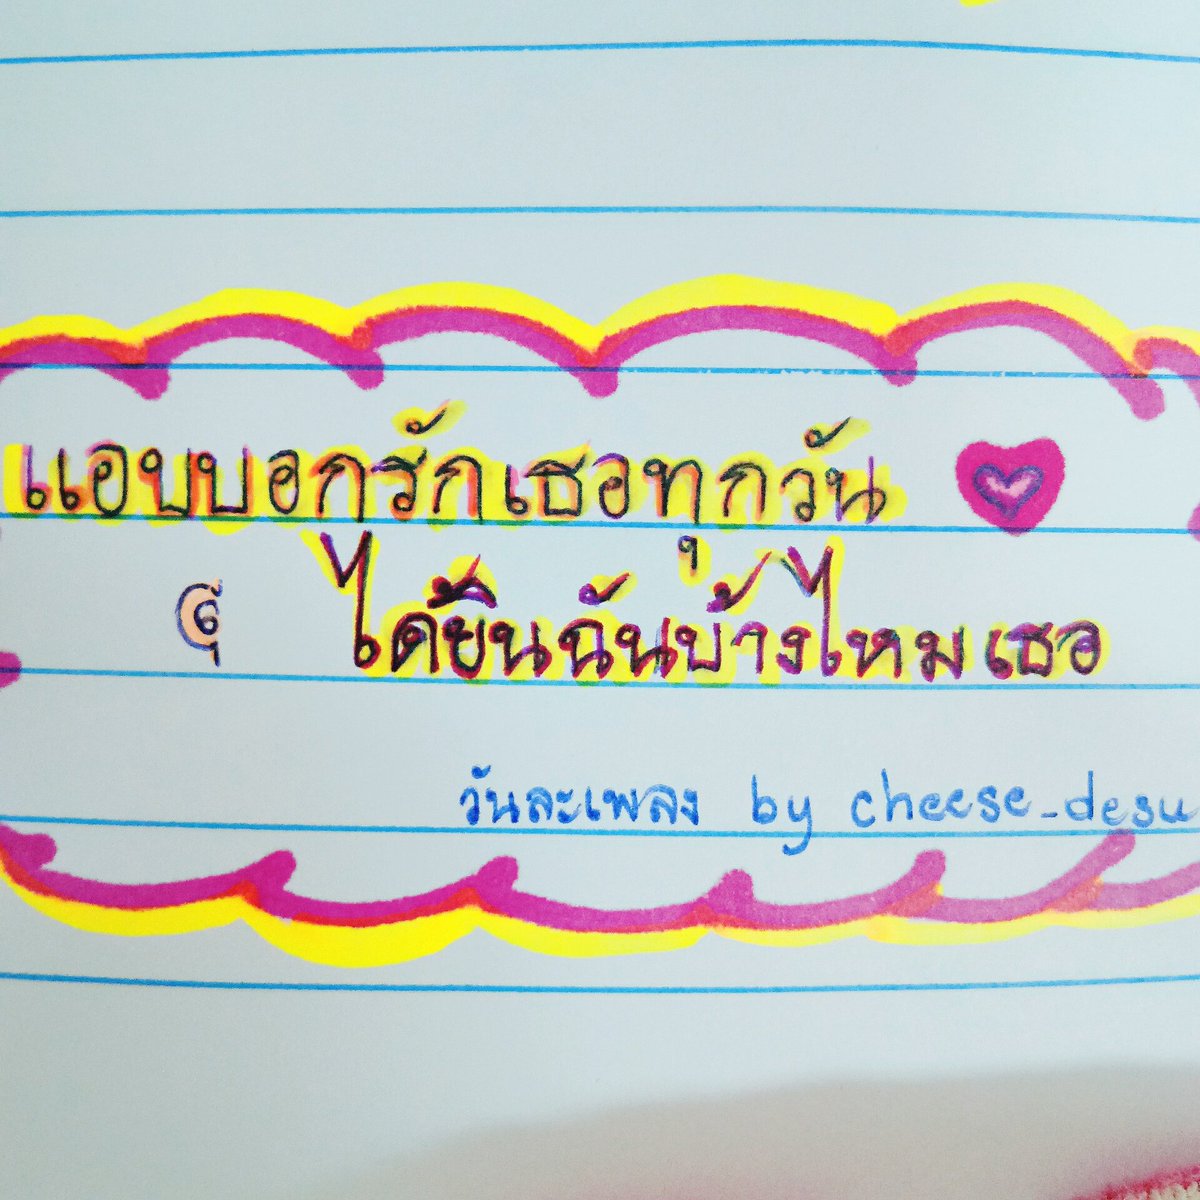 แอบบอกรักเธอทุกวัน
ได้ยินฉันบ้างไหมเธอ
วันละเพลง by cheese_desu